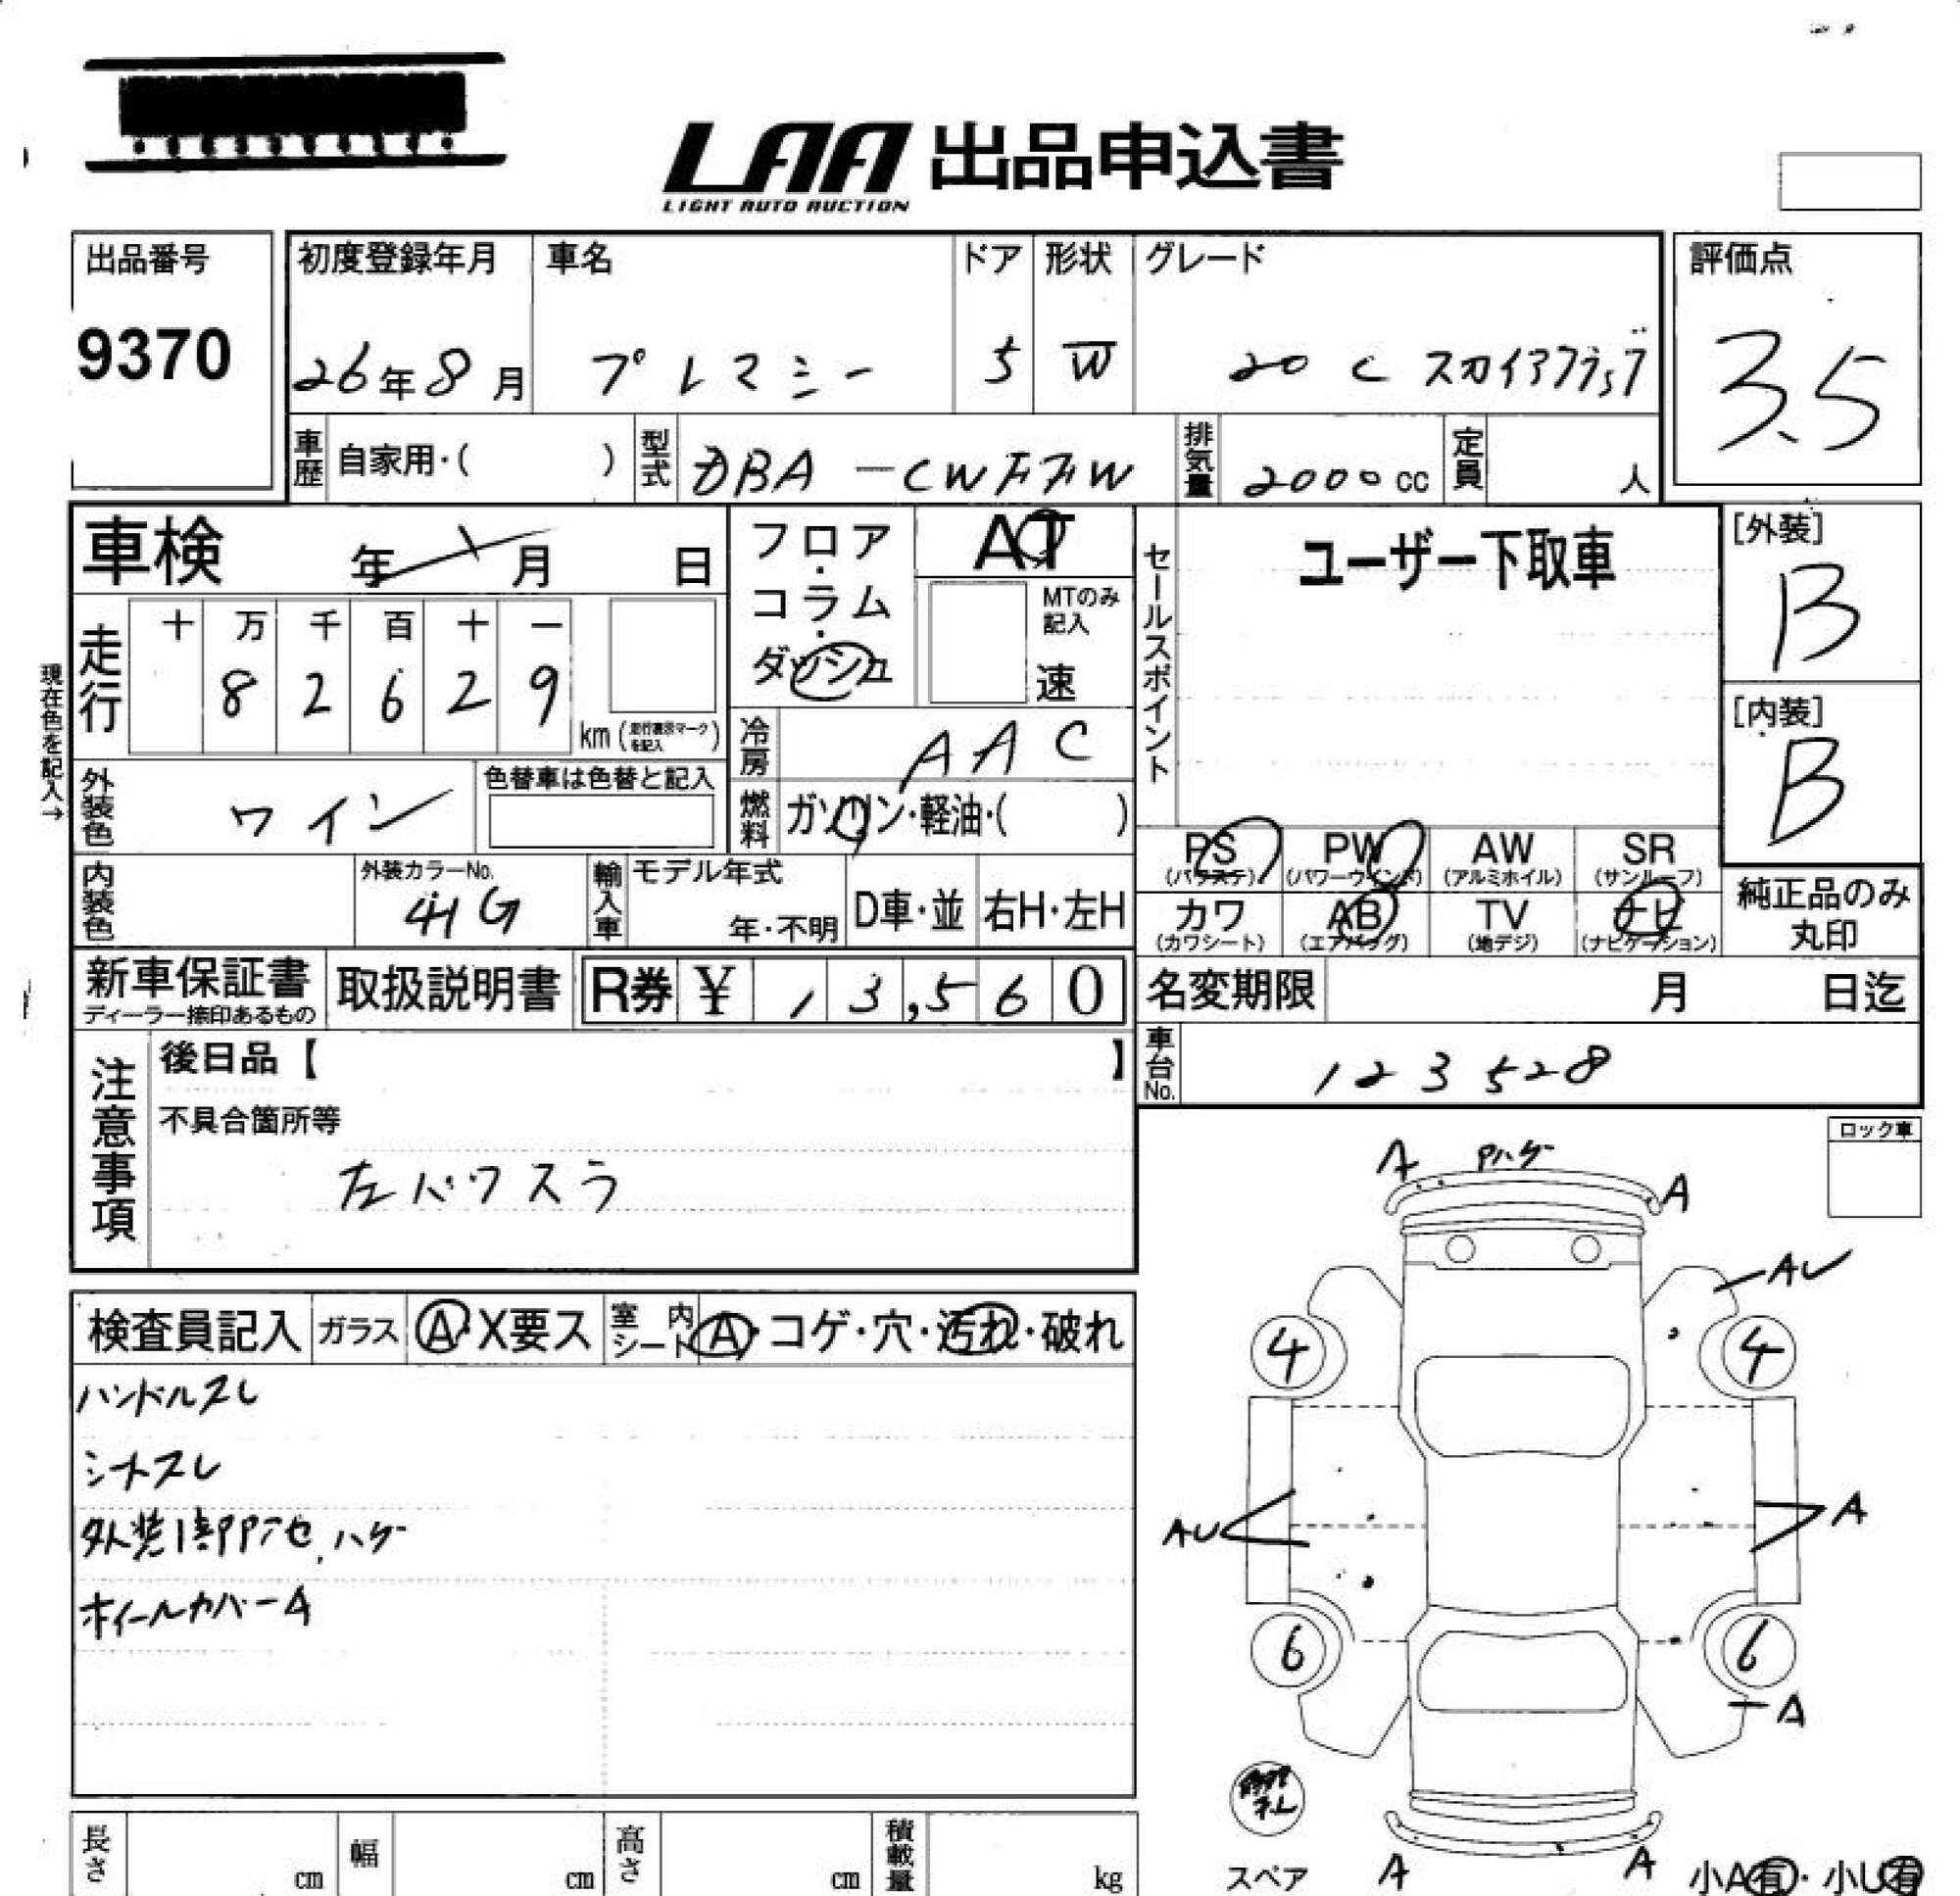 LAA 出品申込書
LIGHT AUTO AUCTION
出品番号
9370
初度登録年月 車名 ドア 形状 グレード
26年8月 プレマシー 5 W 20C スカイアクティブ
評価点
3.5
車歴 自家用・( ) 型式 DBA-CWFFW 排気量 2000cc 定員 人
車検 年 月 日
フロア・コラム・ダッシュ
AT
MTのみ記入
速
セールスポイント
ユーザー下取車
[外装]
B
[内装]
B
現在色を記入→
走行 十 万 千 百 十 一
8 2 6 2 9
km (走行表示マークを記入)
冷房 AAC
外装色 ワイン 色替車は色替と記入
燃料 ガソリン・軽油・( )
PS (パワステ) PW (パワーウィンド) AW (アルミホイル) SR (サンルーフ)
内装色 外装カラーNo. 41G 輸入車 モデル年式 年・不明 D車・並 右H・左H
カワ (カワシート) AB (エアバッグ) TV (地デジ) ナビ (ナビゲーション)
純正品のみ丸印
新車保証書 ディーラー捺印あるもの 取扱説明書 R券 ¥ 13,560
名変期限 月 日迄
車台No. 123528
注意事項
後日品【 】
不具合箇所等
左パワスラ
ロック車
検査員記入 ガラス A・X要ス 室内シート A・コゲ・穴・汚れ・破れ
ハンドルスレ
シートスレ
外装1部アセ、ハゲ
ホイールカバーA
A Pハゲ A
AU
4 4
AU A
6 6
A
スペア
A A
小A有・小U有
長さ cm 幅 cm 高さ cm 積載量 kg